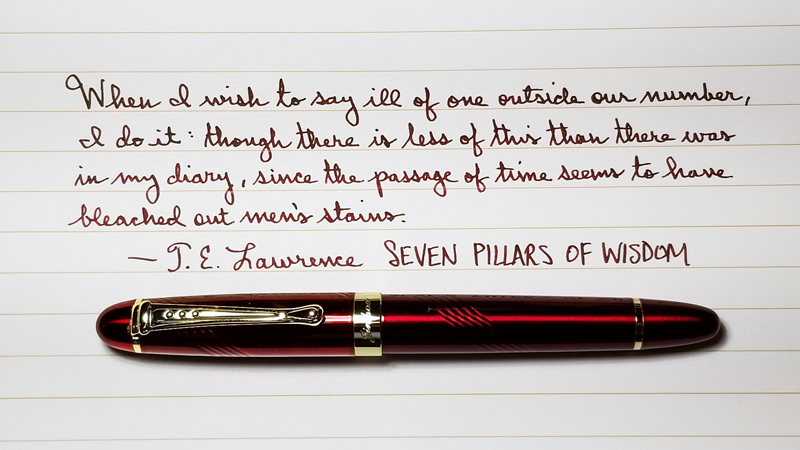 When I wish to say ill of one outside our number,
I do it: though there is less of this than there was
in my diary, since the passage of time seems to have
bleached out men's stains.
— T. E. Lawrence SEVEN PILLARS OF WISDOM